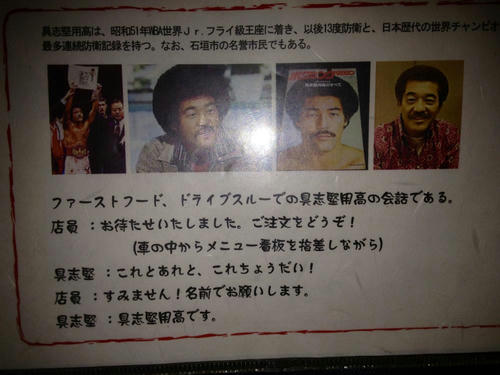 具志堅用高は、昭和51年WBA世界Jr.フライ級王座に着き、以後13度防衛と、日本歴代の世界チャンピオ
最多連続防衛記録を持つ。なお、石垣市の名誉市民でもある。
ファーストフード、ドライブスルーでの具志堅用高の会話である。
店員 : お待たせいたしました。ご注文をどうぞ!
(車の中からメニュー看板を指差しながら)
具志堅 : これとあれと、これちょうだい!
店員 : すみません!名前でお願いします。
具志堅 : 具志堅用高です。